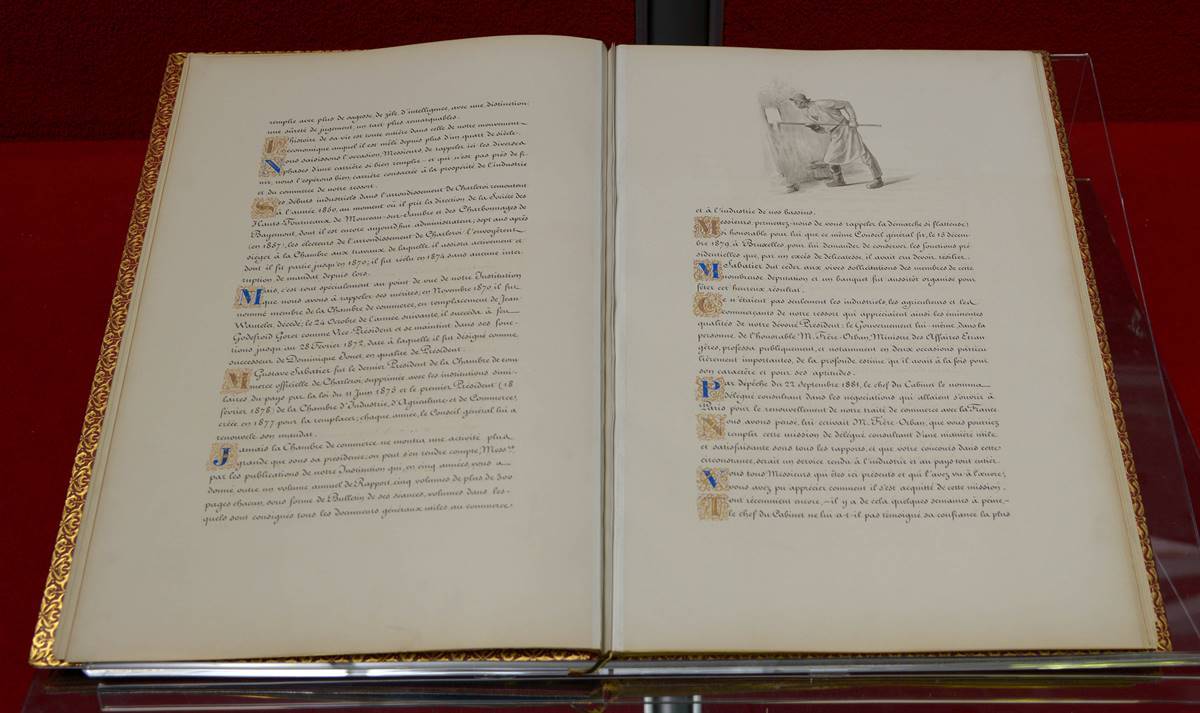 remplie avec plus de sagesse, de zèle, d'intelligence, avec une distinction,
une sûreté de jugement, un tact plus remarquables.
L'histoire de sa vie est toute entière dans celle de notre mouvement
économique auquel il est mêlé depuis plus d'un quart de siècle.
Nous saisissons l'occasion, Messieurs, de rappeler ici les diverses
phases d'une carrière si bien remplie et qui n'est pas près de fi-
nir, nous l'espérons bien, carrière consacrée à la prospérité de l'industrie
et du commerce de notre ressort.
Ses débuts industriels dans l'arrondissement de Charleroi remontent
à l'année 1860, au moment où il prit la direction de la Société des
Hauts-Fourneaux de Monceau-sur-Sambre et des Charbonnages de
Bayemont, dont il est encore aujourd'hui administrateur; sept ans après
(en 1867), les électeurs de l'arrondissement de Charleroi l'envoyèrent
siéger à la Chambre aux travaux de laquelle il assista activement et
dont il fit partie jusqu'en 1870; il fut réélu en 1874 sans aucune inter-
ruption de mandat depuis lors.
Mais, c'est tout spécialement au point de vue de notre Institution
que nous avons à rappeler ses mérites; en Novembre 1870 il fut
nommé membre de la Chambre de commerce, en remplacement de Jean
Wauteler, décédé; le 24 Octobre de l'année suivante, il succéda à feu
Godefroid Goret comme Vice-Président et se maintint dans ses fonc-
tions jusqu'au 28 Février 1872, date à laquelle il fut désigné comme
successeur de Dominique Jouet, en qualité de Président.
M Gustave Sabatier fut le dernier Président de la Chambre de com
merce officielle de Charleroi, supprimée avec les institutions simi-
laires du pays par la loi du 11 Juin 1875 et le premier Président (18
février 1878) de la Chambre d'Industrie, d'Agriculture et de Commerce,
créée en 1877 pour la remplacer; chaque année, le Conseil général lui a
renouvelé son mandat.
Jamais la Chambre de commerce ne montra une activité plus
grande que sous sa présidence; on peut s'en rendre compte, Mess.rs
par les publications de notre Institution qui, en cinq années, vous a
donné outre un volume annuel de Rapport, cinq volumes de plus de 300
pages chacun, sous forme de Bulletin de ses séances, volumes dans les-
quels sont consignés tous les documents généraux utiles au commerce
et à l'industrie de nos bassins.
Messieurs, permettez-nous de vous rappeler la démarche si flatteuse,
si honorable pour lui que ce même Conseil général fit, le 15 décem-
bre 1879, à Bruxelles pour lui demander de conserver les fonctions pré-
sidentielles que, par un excès de délicatesse, il avait cru devoir résilier.
M Sabatier dut céder aux vives sollicitations des membres de cette
nombreuse députation et un banquet fut aussitôt organisé pour
fêter cet heureux résultat.
Ce n'étaient pas seulement les industriels, les agriculteurs et les
commerçants de notre ressort qui appréciaient ainsi les éminentes
qualités de notre dévoué Président; le Gouvernement lui-même, dans la
personne de l'honorable M. Frère-Orban, Ministre des Affaires Etran
gères, professa publiquement, et notamment en deux occasions particu-
lièrement importantes, de la profonde estime qu'il avait à la fois pour
son caractère et pour ses aptitudes.
Par dépêche du 22 septembre 1881, le chef du Cabinet le nomma
délégué consultant dans les négociations qui allaient s'ouvrir à
Paris pour le renouvellement de notre traité de commerce avec la France
Nous avons pensé, lui écrivait M. Frère-Orban, que vous pourriez
remplir cette mission de délégué consultant d'une manière utile
et satisfaisante sous tous les rapports, et que votre concours dans cette
circonstance, serait un service rendu à l'industrie et au pays tout entier.
Vous tous Messieurs qui êtes ici présents et qui l'avez vu à l'œuvre,
vous avez pu apprécier comment il s'est acquitté de cette mission.
Tout récemment encore, – il y a de cela quelques semaines à peine, –
le chef du Cabinet ne lui a-t-il pas témoigné sa confiance la plus